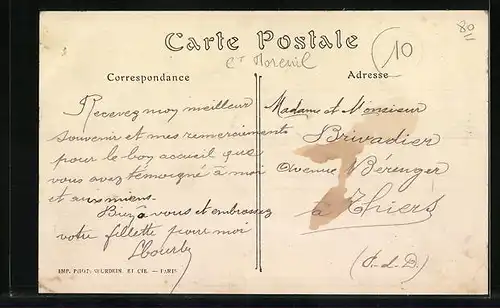 80
Carte Postale
10
Ct Moreuil
Correspondance
Adresse
Recevez moy meilleur
souvenir et mes remerciments
pour le boy accueil que
vous avez témoigné à moi
et aux miens.
Biey à vous et embrassez
votre fillette pour moi
Madame et Monsieur
Brivadier
Avenue Bérenger
à Thiers
(P.-d-D.)
IMP. PHOT. ET CIE. — PARIS